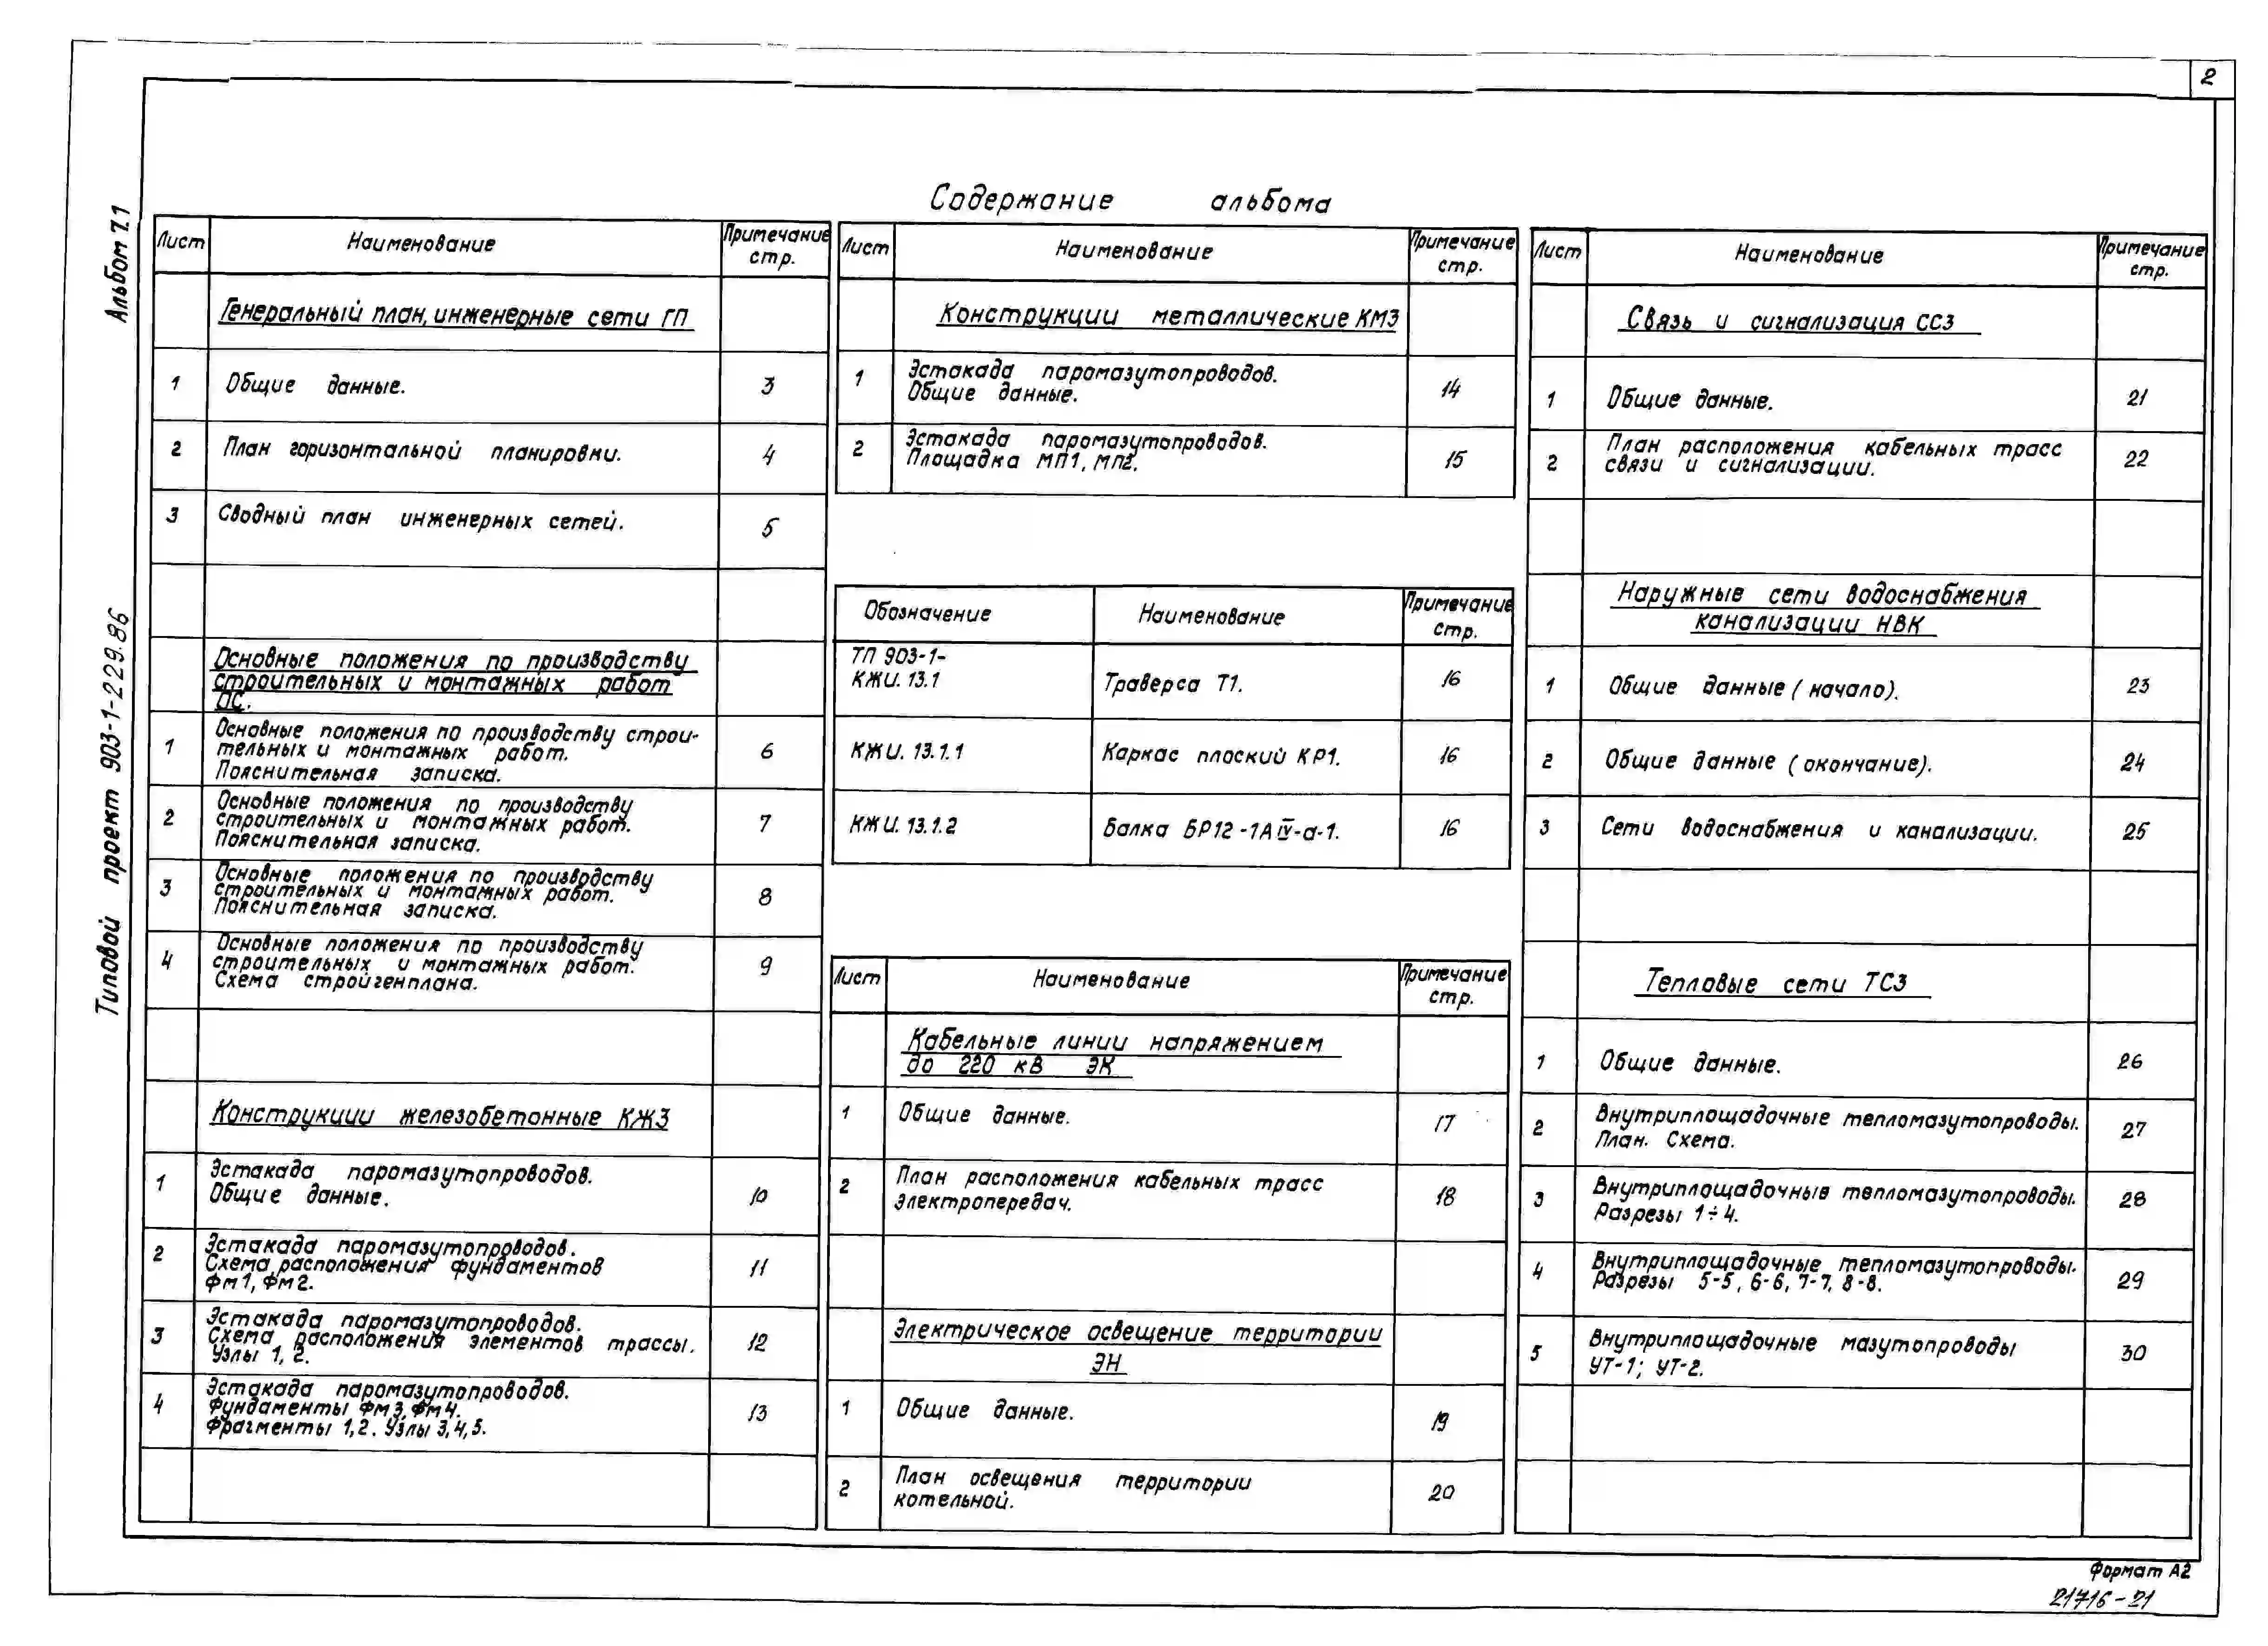 2
Альбом 7.1
Типовой проект 903-1-229.86
Содержание альбома
Лист
Наименование
Примечание
стр.
Генеральный план, инженерные сети ГП
1
Общие данные.
3
2
План горизонтальной планировки.
4
3
Сводный план инженерных сетей.
5
Основные положения по производству
строительных и монтажных работ
ОС.
1
Основные положения по производству строи-
тельных и монтажных работ.
Пояснительная записка.
6
2
Основные положения по производству
строительных и монтажных работ.
Пояснительная записка.
7
3
Основные положения по производству
строительных и монтажных работ.
Пояснительная записка.
8
4
Основные положения по производству
строительных и монтажных работ.
Схема стройгенплана.
9
Конструкции железобетонные КЖ3
1
Эстакада паромазутопроводов.
Общие данные.
10
2
Эстакада паромазутопроводов.
Схема расположения фундаментов
Фм1, Фм2.
11
3
Эстакада паромазутопроводов.
Схема расположения элементов трассы.
Узлы 1, 2.
12
4
Эстакада паромазутопроводов.
Фундаменты Фм3, Фм4.
Фрагменты 1,2. Узлы 3,4,5.
13
Лист
Наименование
Примечание
стр.
Конструкции металлические КМ3
1
Эстакада паромазутопроводов.
Общие данные.
14
2
Эстакада паромазутопроводов.
Площадка МП1, МП2.
15
Обозначение
Наименование
Примечание
стр.
ТП 903-1-
КЖИ. 13.1
Траверса Т1.
16
КЖИ. 13.1.1
Каркас плоский КР1.
16
КЖИ. 13.1.2
Балка БР12-1АIV-а-1.
16
Лист
Наименование
Примечание
стр.
Кабельные линии напряжением
до 220 кВ ЭК
1
Общие данные.
17
2
План расположения кабельных трасс
электропередач.
18
Электрическое освещение территории
ЭН
1
Общие данные.
19
2
План освещения территории
котельной.
20
Лист
Наименование
Примечание
стр.
Связь и сигнализация СС3
1
Общие данные.
21
2
План расположения кабельных трасс
связи и сигнализации.
22
Наружные сети водоснабжения
канализации НВК
1
Общие данные (начало).
23
2
Общие данные (окончание).
24
3
Сети водоснабжения и канализации.
25
Тепловые сети ТС3
1
Общие данные.
26
2
Внутриплощадочные тепломазутопроводы.
План. Схема.
27
3
Внутриплощадочные тепломазутопроводы.
Разрезы 1÷4.
28
4
Внутриплощадочные тепломазутопроводы.
Разрезы 5-5, 6-6, 7-7, 8-8.
29
5
Внутриплощадочные мазутопроводы
УТ-1; УТ-2.
30
Формат А2
21716-21